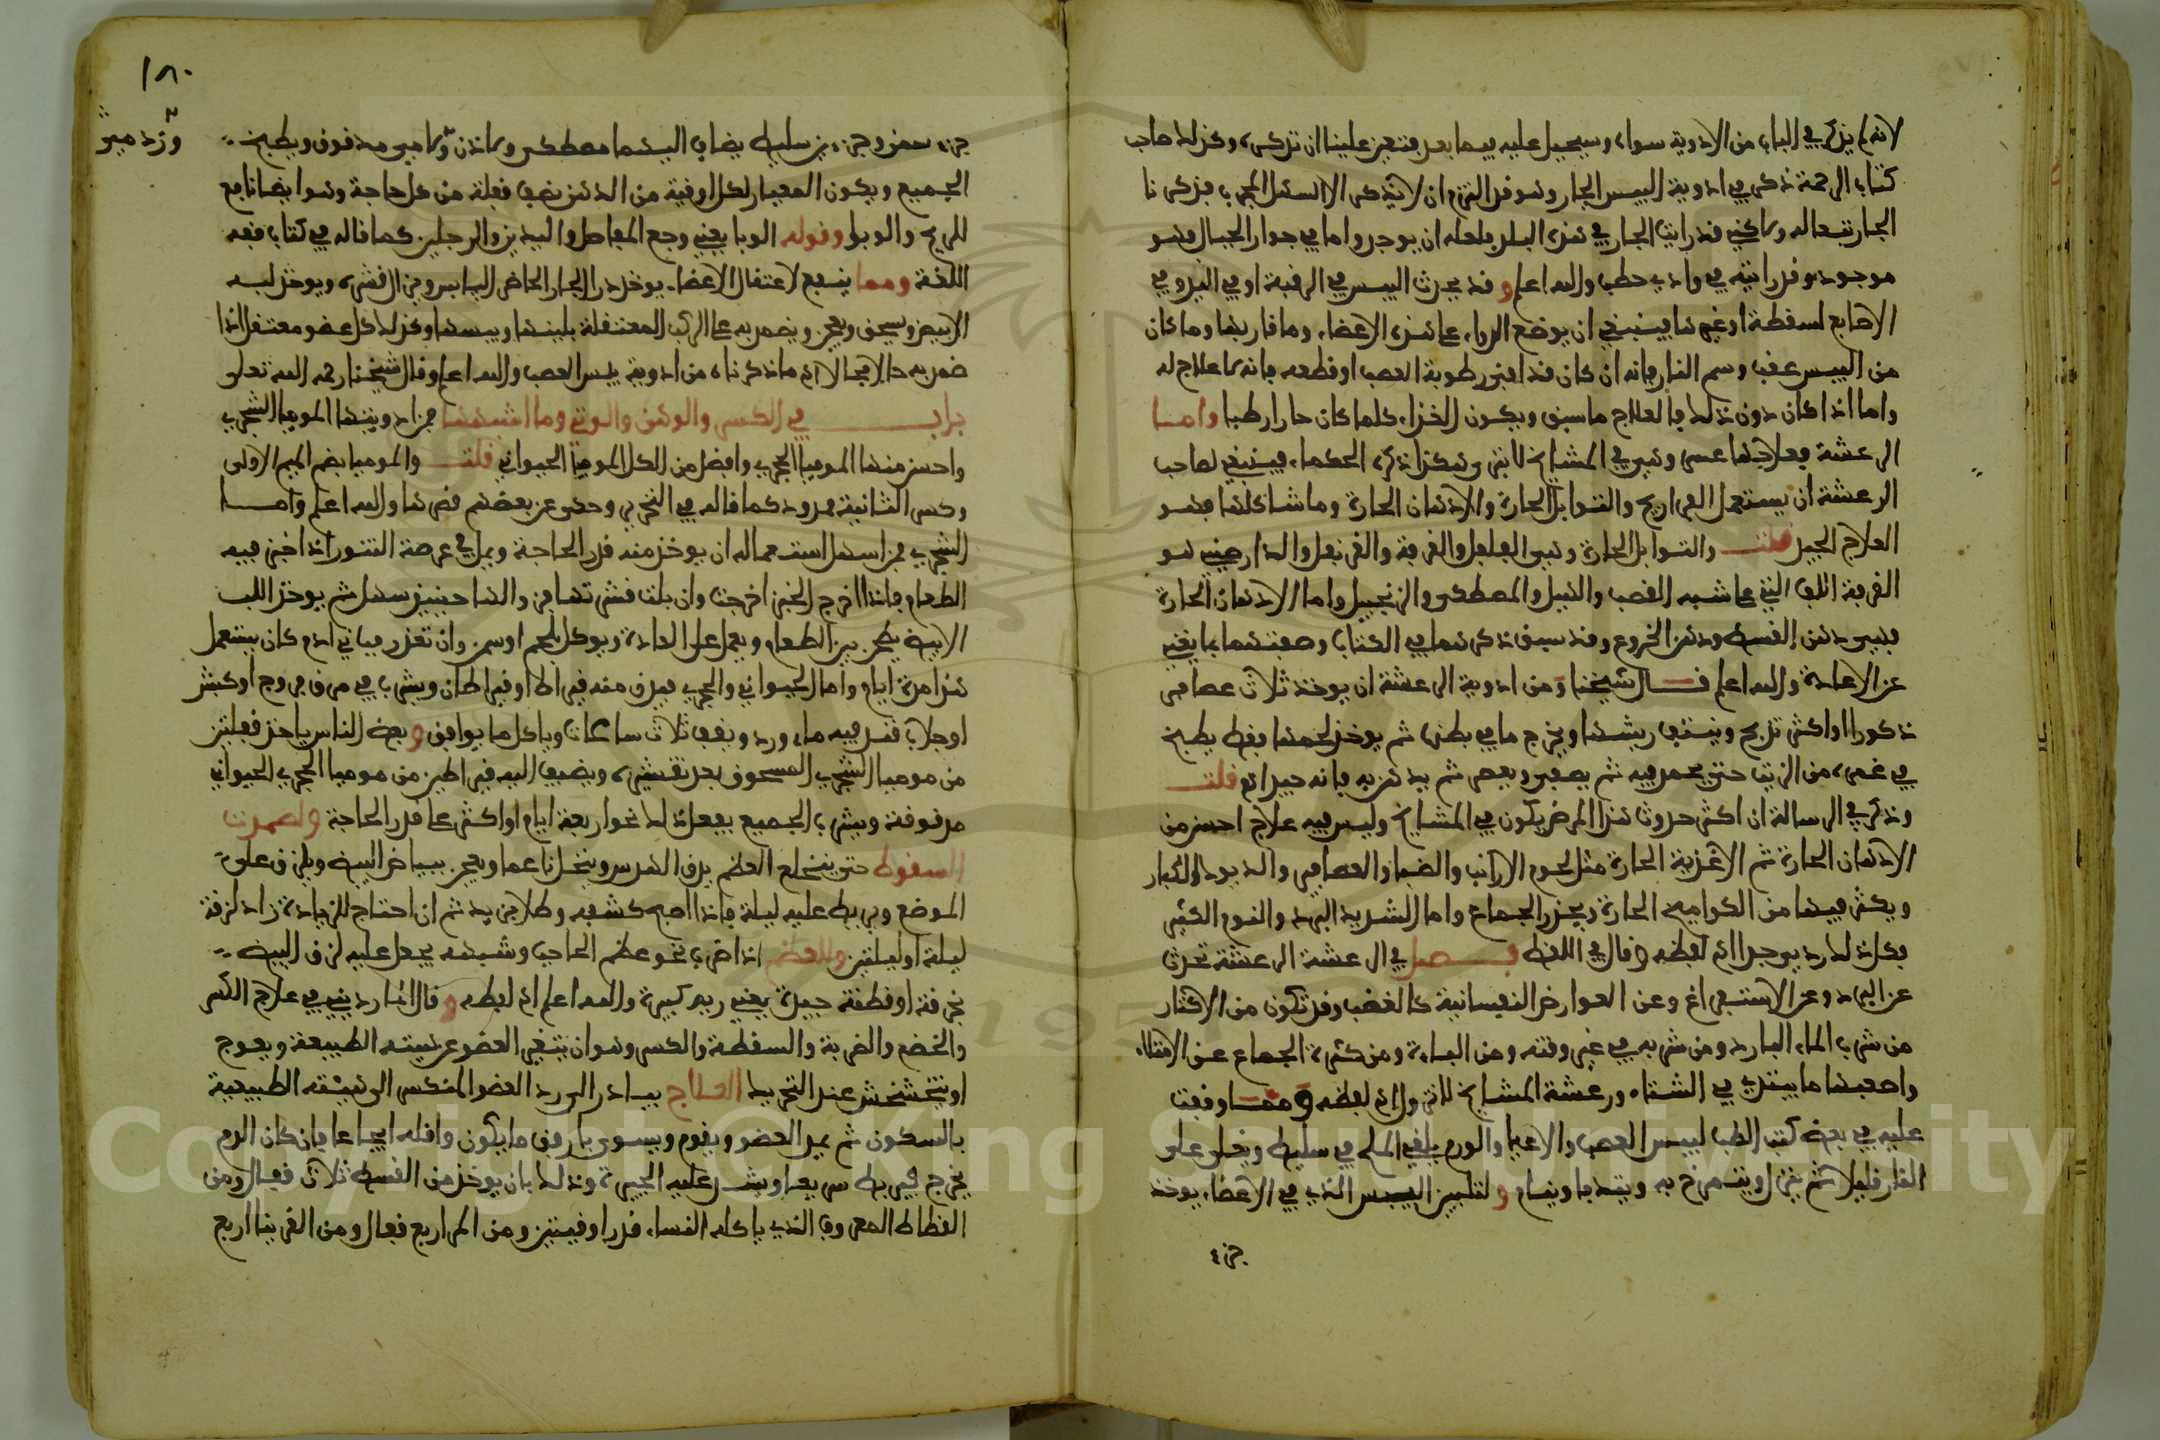 لانه لم يذكر في الباب من الادوية سواه وسيحيل عليه فيما بعد فتعين علينا ان نذكره وكذلك صاحب
كتاب الرحمة ذكر في ادوية اليبس الحار وهو قد التزم ان لا يذكر الا السهل المجرب فذكرنا
الحار تبعا له ولاكني قد رايت الحار في هذه البلد فلعله ان يوجد واما في جوار الجبال فهو
موجود وقد رايته في وادي حطب والله اعلم وقد يحدث اليبس في الرقبة او في اليد وفي
الاصابع لسقطة او غيرها فينبغي ان يوضع الدواء على هذه الاعضاء وما قاربها وما كان
من اليبس عقب وسم النار فانه ان كان قد افنى رطوبة العصب او قطعه فانه لا علاج له
واما اذا كان دون ذلك فالعلاج ما سبق ويكون الغذاء كلما كان حارا رطبا واما
الرعشة فعلاجها عسر وهي في المشايخ لا تبرى هكذا ذكره الحكماء فينبغي لصاحب
الرعشة ان يستعمل الفراريج والتوابل الحارة والادهان الحارة وما شاكلها فهو
العلاج الجيد قلت والتوابل الحارة وهي الفلفل والقرفة والقرنفل والدارصيني هو
القرفة اللف التي على شبه القصب والنبيل والمصطكى والزنجبيل واما الادهان الحارة
فهي دهن القسط ودهن الخروع وقد سبق ذكرهما في الكتاب وصفتهما بما يغني
عن الاعادة والله اعلم قال شيخنا ومن ادوية الرعشة ان يوخذ ثلاث عصافير
ذكورا او اكثر تذبح وينتف ريشها ويخرج ما في بطنها ثم يوخذ لحمها فقط يطبخ
في غمره من الزيت حتى يحمر فيه ثم يصفى ويعصر ثم يدهن به فانه جيد انتهى قلت
وذكر في الرسالة ان اكثر حدوث هذا المرض يكون في المشايخ وليس فيه علاج احسن من
الادهان الحارة ثم الاغذية الحارة مثل لحوم الارانب والضباء والعصافير والديوك الكبار
ويكثر فيها من الكواميخ الحارة ويحذر الجماع واما الشديد البرد والنوم الكثير
فكل ذلك رديء جدا انتهى لفظه وقال في اللقط فصل في الرعشة الرعشة تحدث
عن البرد وعن الاستفراغ وعن العوارض النفسانية كالغضب وقد تكون من الاكثار
من شرب الماء البارد ومن شربه في غير وقته ومن الباءة ومن كثرة الجماع عن الامتلاء
واصعبها ما يبتدي في الشتاء ورعشة المشايخ لا تزول انتهى لفظه ومما وقفت
عليه في بعض كتب الطب ليبس العصب والاعيا والورم يلقى الملح في سليط ويغلى على
النار قليلا ثم ينزل ويتمرخ به ويتدفا وينام ولتليين اليبس الذي في الاعضاء يوخذ
جزء
١٨٠
وزد ميو
جزء سمن وجزءين سليط يضاف اليهما مصطكى ولاذن ولامي مدقوق ويطبخ
الجميع ويكون المعيار لكل اوقية من الدهن نصف قفلة من كل حاجة وهو ايضا نافع
للريح والوبا وقوله الوبا يعني وجع المفاصل واليدين والرجلين كما قاله في كتاب فقه
اللغة ومما ينفع لاعتقال الاعضاء يوخذ دار الحار الحاض اليابس وجزء القشره ويوخذ لبه
الابيض ويسحق ويعجن ويضمد به على الركب المعتقلة يلينها ويبسها وكذلك كل عضو معتقل اذا
ضمد به حالا فيجالا انتهى ما ذكرناه من ادوية يبس العصب والله اعلم وقال شيخنا رحمه الله تعالى
باب في الكسر والوهن والوثي وما اشبهها فمن ادويتها الموميا الشجري
واحسن منها الموميا الحجري وافضل من الكل الموميا الحيواني قلت والموميا بضم الميم الاولى
وكسر الثانية ممدود كما قاله في التحرير وحكي عن بعضهم قصرها والله اعلم واما
الشجري فمن اسهل استعماله ان يوخذ منه قدر الحاجة ويبل في عرصة التنور اذا اخبز فيه
الطعام فاذا اخرج الخبز اخرجت وان بلت قشرتها فزوالها حينئذ سهل ثم يوخذ اللب
الابيض يطحن بين الطعام ويعمل على العادة ويوكل بلحم او سمن وان تعذر فباي ادم كان يستعمل
هذا مدة ايام واما الحيواني والحجري فيدق منه قيراطا او قيراطان ويشرب في مرق فروج او كبش
او جلاب قند فيه ماء ورد ويقف ثلاث ساعات وياكل ما يوافق وبعض الناس ياخذ قفلتين
من موميا الشجري المسحوق بعد تقشيره ويضيف اليه قيراطين من موميا الحجري الحيواني
مدقوقة ويشرب الجميع يفعل ذلك نحو اربعة ايام او اكثر على قدر الحاجة ولصدمة
السقوط حتى ينخلع العظم يدق العدس وينخل ناعما ويعجن ببياض البيض ويلزق على
الموضع ويربط عليه ليلة فاذا اصبح كشفه وطلا جديد ثم ان احتاج للزيادة زاد لزقة
ليلة او ليلتين وللعظم اذا ضرب نحو عظم الحاجب وشبهه يجعل عليه لزق البيض
بخرقة او قطنة جيدة يعني ربد كبيرة والله اعلم انتهى لفظه وقال المارديني في علاج الكسر
والخضع والضربة والسقطة والكسر وهو ان يتغير العضو عن هيئته الطبيعة ويعوج
او يتخشخش عند التحريك العلاج يبادر الى رد العضو المنكسر الى هيئته الطبيعية
بالسكون ثم يمد العضو ويقوم ويسوى بارفق ما يكون واقله ايجاعا فان كان الدم
يخرج فيربط سريعا ويشد عليه الجبيرة وذلك بان يوخذ من القسط ثلاث قفال ومن
القطاط المعروف الذي ياكله النساء قدر اوقيتين ومن المر اربع قفال ومن القرينا اربع